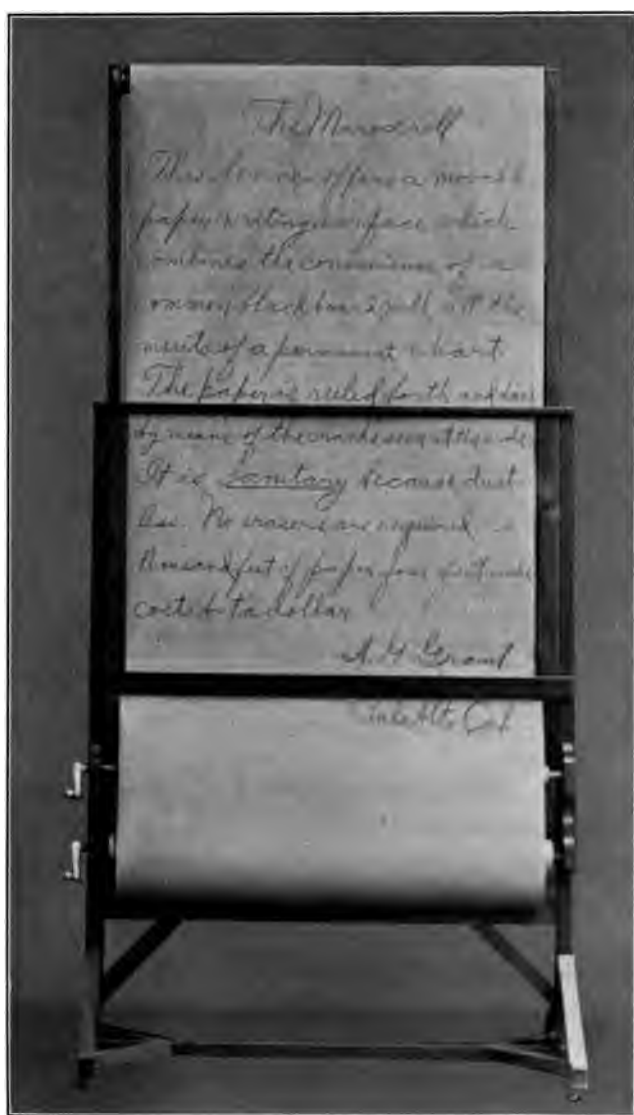 The Muroscroll
This device offers a movable
paper writing surface which
combines the convenience of a
common blackboard with all the
merits of a permanent chart
The paper is reeled forth and back
by means of the cranks seen at the side
It is Sanitary because dust-
less. No erasers are required. a
thousand feet of paper four feet wide
costs but a dollar
Grant
Palo Alto Cal